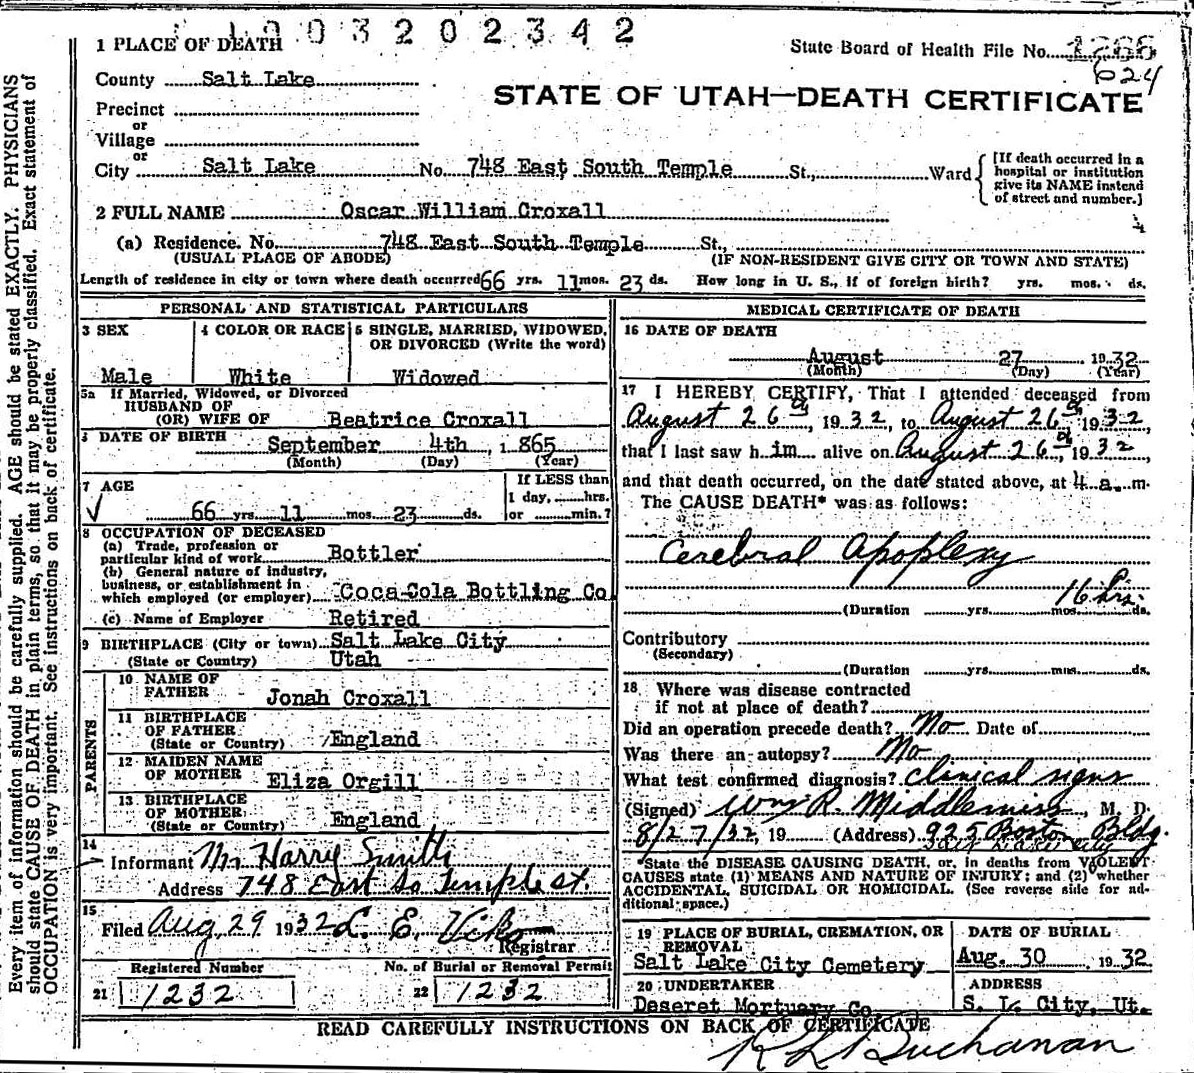 0 0 3 2 0 2 3 4 2
1 PLACE OF DEATH
State Board of Health File No. 1266
624
County Salt Lake
STATE OF UTAH—DEATH CERTIFICATE
Precinct
or
Village
or
City Salt Lake No. 748 East South Temple St., Ward
[If death occurred in a
hospital or institution
give its NAME instead
of street and number.]
2 FULL NAME Oscar William Croxall
(a) Residence. No. 748 East South Temple St.,
(USUAL PLACE OF ABODE) (IF NON-RESIDENT GIVE CITY OR TOWN AND STATE)
Length of residence in city or town where death occurred 66 yrs. 11 mos. 23 ds. How long in U. S., if of foreign birth? yrs. mos. ds.
PERSONAL AND STATISTICAL PARTICULARS
3 SEX
Male
4 COLOR OR RACE
White
5 SINGLE, MARRIED, WIDOWED,
OR DIVORCED (Write the word)
Widowed
5a If Married, Widowed, or Divorced
HUSBAND OF
(OR) WIFE OF Beatrice Croxall
6 DATE OF BIRTH September 4th, 1865
(Month) (Day) (Year)
7 AGE
66 yrs. 11 mos. 23 ds.
If LESS than
1 day, hrs.
or min.?
8 OCCUPATION OF DECEASED
(a) Trade, profession or
particular kind of work Bottler
(b) General nature of industry,
business, or establishment in
which employed (or employer) Coca-Cola Bottling Co
(c) Name of Employer Retired
9 BIRTHPLACE (City or town) Salt Lake City
(State or Country) Utah
PARENTS
10 NAME OF
FATHER Jonah Croxall
11 BIRTHPLACE
OF FATHER
(State or Country) England
12 MAIDEN NAME
OF MOTHER Eliza Orgill
13 BIRTHPLACE
OF MOTHER
(State or Country) England
14
Informant Mr Harry Smith
Address 748 East So Temple St.
15
Filed Aug 29 1932
Registrar
Registered Number
21 1232
No. of Burial or Removal Permit
22 1232
MEDICAL CERTIFICATE OF DEATH
16 DATE OF DEATH
August 27 1932
(Month) (Day) (Year)
17 I HEREBY CERTIFY, That I attended deceased from
August 26th, 1932, to August 26th 1932,
that I last saw him alive on August 26th, 1932,
and that death occurred, on the date stated above, at 4 a. m.
The CAUSE DEATH* was as follows:
Cerebral Apoplexy
16 hrs.
(Duration yrs. mos. ds.
Contributory
(Secondary)
(Duration yrs. mos. ds.
18 Where was disease contracted
if not at place of death?
Did an operation precede death? No Date of
Was there an autopsy? No
What test confirmed diagnosis? Clinical signs
(Signed) Wm R. Middlemiss, M. D.
8/27/32, 19 (Address) 925 Boston Bldg.
Salt Lake City
State the DISEASE CAUSING DEATH, or, in deaths from VIOLENT
CAUSES state (1) MEANS AND NATURE OF INJURY; and (2) whether
ACCIDENTAL, SUICIDAL OR HOMICIDAL. (See reverse side for ad-
ditional space.)
19 PLACE OF BURIAL, CREMATION, OR
REMOVAL
Salt Lake City Cemetery
DATE OF BURIAL
Aug. 30, 1932.
20 UNDERTAKER
Deseret Mortuary Co.
ADDRESS
S. L. City, Ut.
READ CAREFULLY INSTRUCTIONS ON BACK OF CERTIFICATE
Buchanan
Every item of information should be carefully supplied. AGE should be stated EXACTLY. PHYSICIANS
should state CAUSE OF DEATH in plain terms, so that it may be properly classified. Exact statement of
OCCUPATION is very important. See instructions on back of certificate.